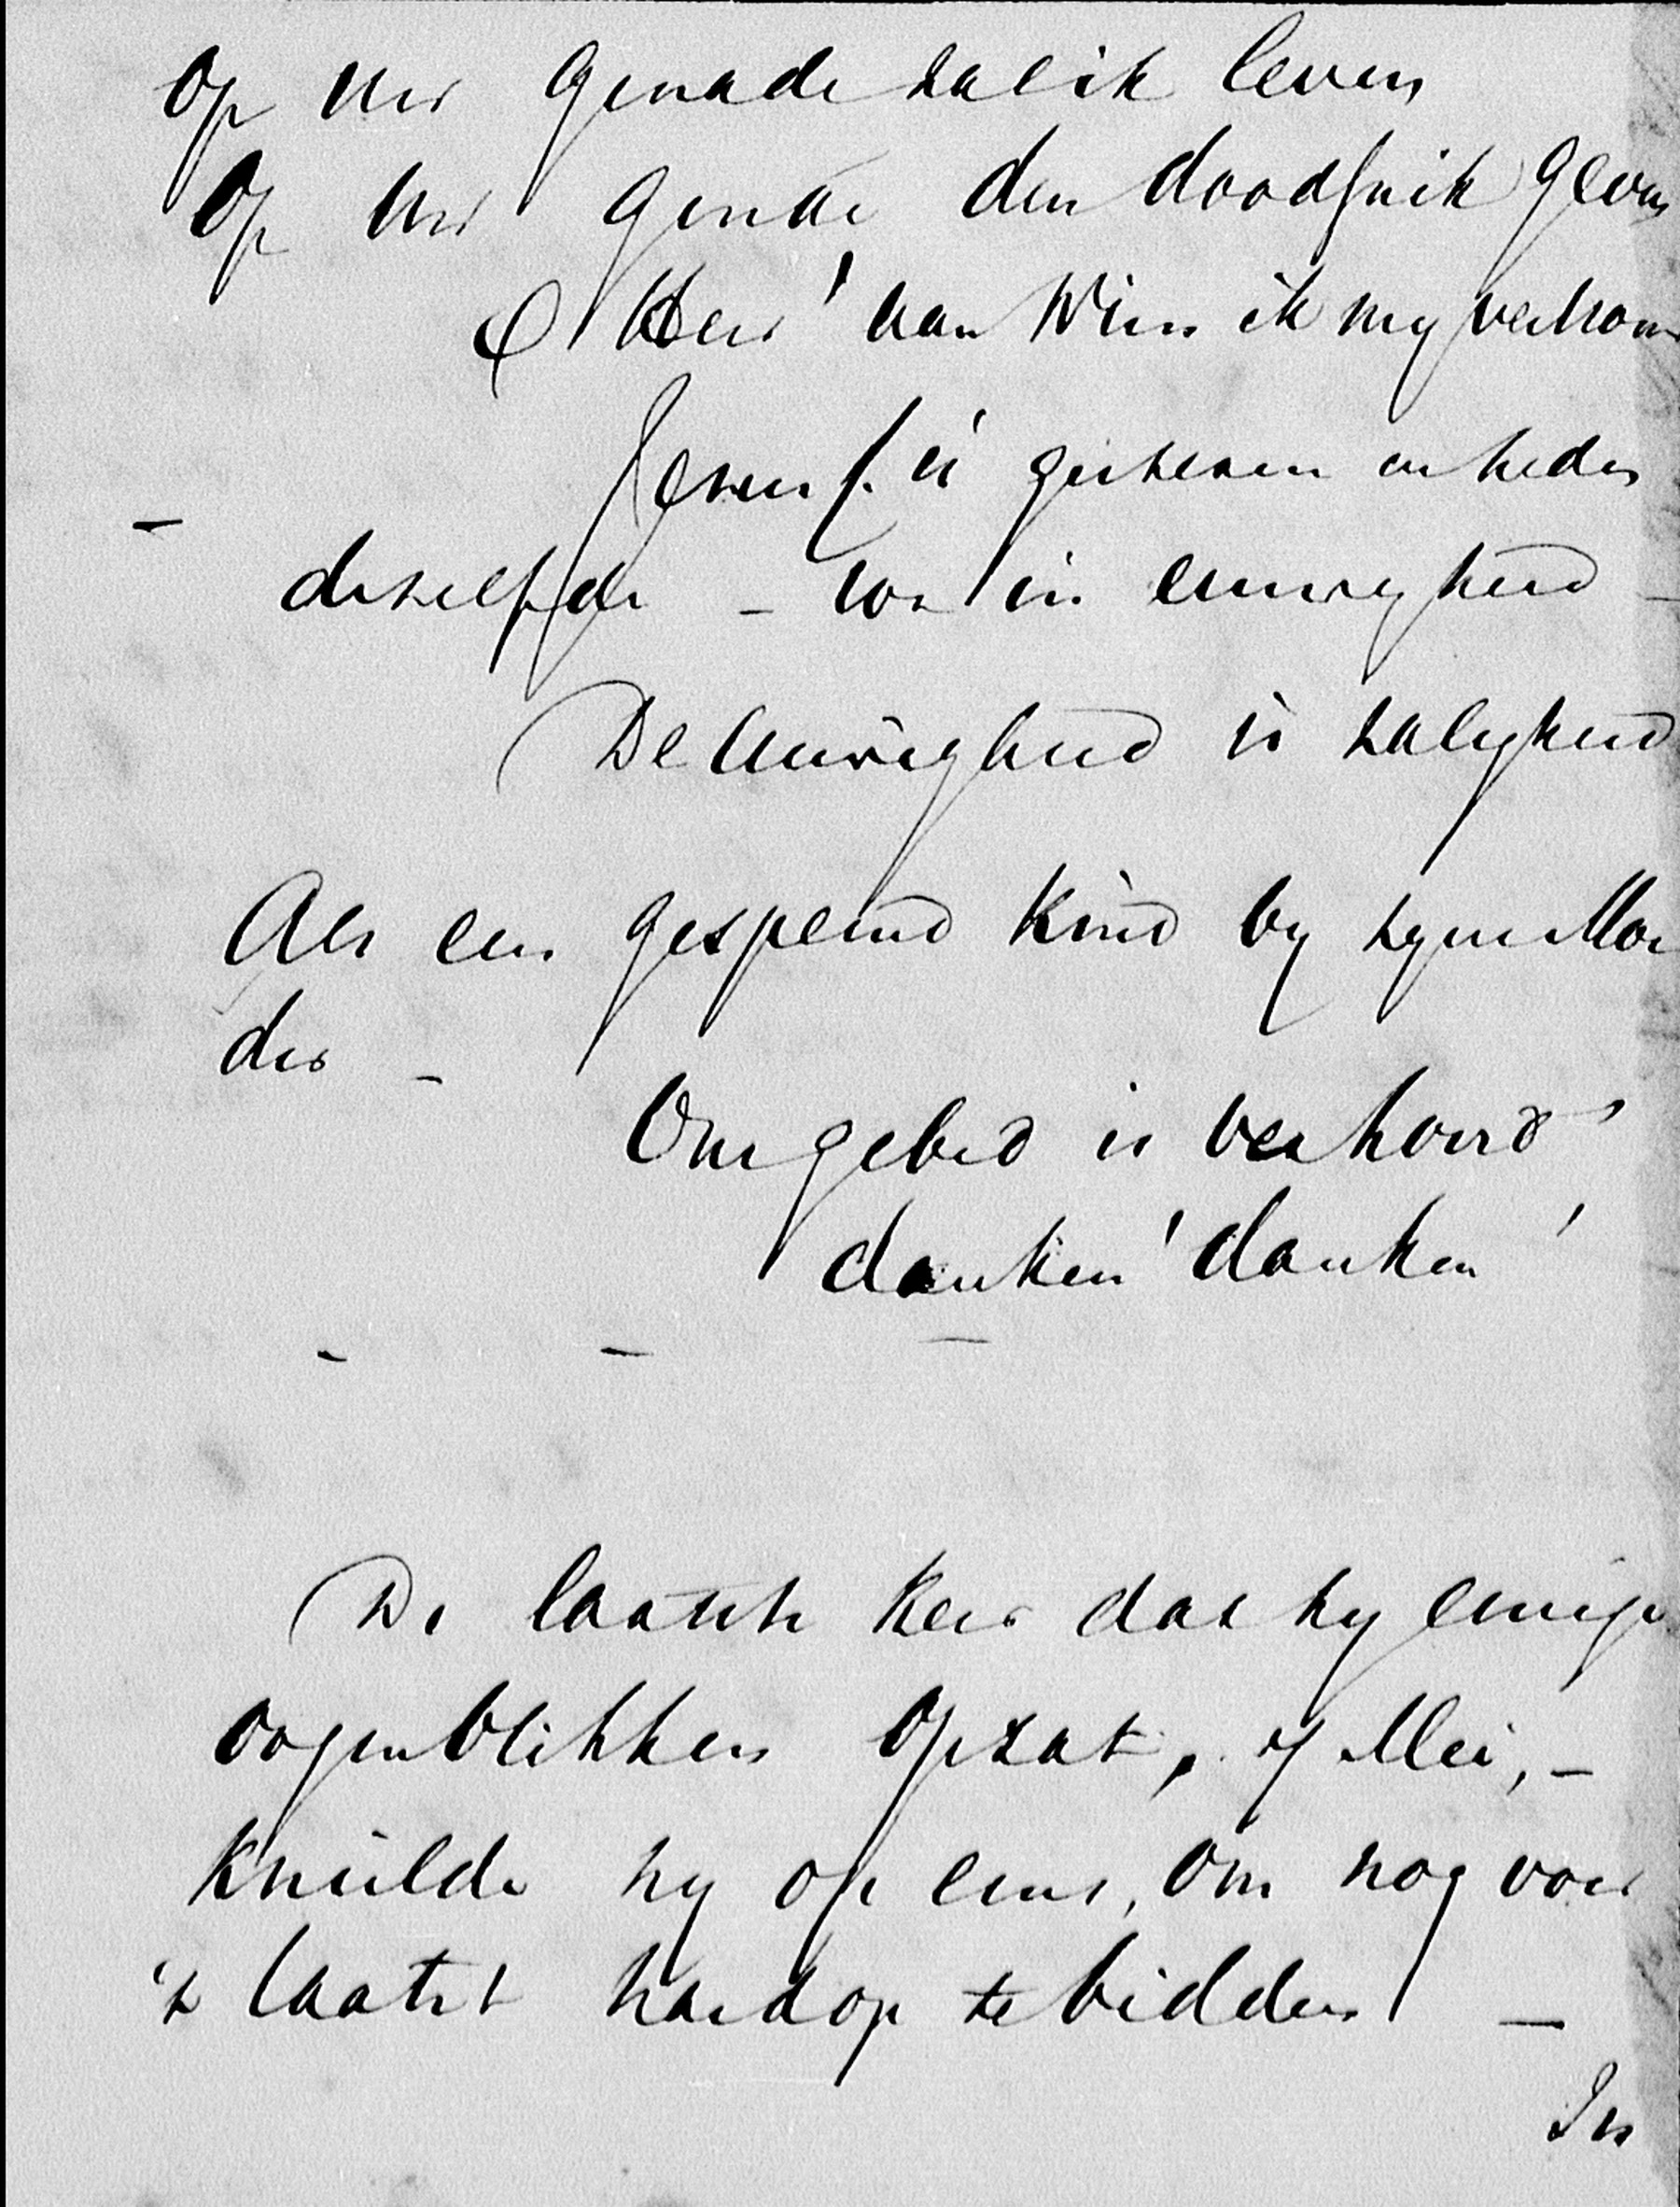 Op Uw genade zal ik leven
Op Uw genâe den doodsnik geven
O Heer! aan Wien ik my vertrouw
Jesus C. is gisteren en heden
dezelfde - tot in eeuwigheid -
De Eeuwigheid is zaligheid
Als een gespeend kind by zyne Moe
der -
Ons gebed is verhoord
danken! danken!
De laatste keer dat hy eenige
oogenblikken opzat, 7 Mei, -
knielde hy op eens, om nog voor
't laatst hardop te bidden -
In